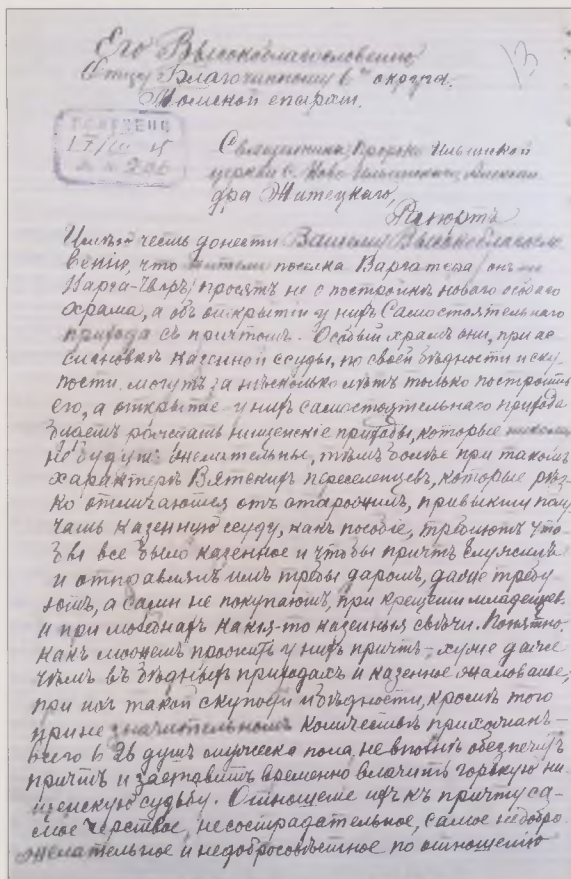 Его Высокоблагословенію
Отцу Благочинному 6го округа.
Томской епархіи.
13
ПОЛУЧЕНО
Священника Пророко Ильинской
церкви с. Ново-Ильинскаго, Алексан
дра Житецкаго,
Рапортъ
Имѣю честь донести Вашему Высокоблагосло
венію, что жители поселка Варгатера онъ же
Нарга-Иворъ просятъ не о постройкѣ новаго особаго
храма, а объ открытіи у нихъ Самостоятельнаго
прихода съ причтомъ. Особый храмъ они, при ас
сигновкѣ казенной ссуды, по своей бѣдности и ску
пости могутъ за нѣсколько лѣтъ только построить
его, а открытіе у нихъ самостоятельнаго прихода
будетъ нищенскіе приходы, которые
не будутъ желательны, тѣмъ болѣе при такомъ
характерѣ Вятскихъ переселенцевъ, которые рѣз
ко отличаются отъ старожилъ, привыкши полу
чать казенную ссуду, какъ пособіе, требуютъ что
бы все было казенное и чтобы причтъ служилъ
и отправлялъ имъ требы даромъ, даже требу
ютъ, а сами не покупаютъ, при крещеніи младенцевъ
и при молебнахъ какія-то казенныя свѣчи. Понятно,
какъ можетъ прожить у нихъ причтъ - хуже даже
чѣмъ въ бѣдныхъ приходахъ и казенное жалованье,
при ихъ такой скупости и бѣдности, кромѣ того
при не значительномъ количествѣ прихожанъ -
всего въ 26 душъ мужеска пола, не вполнѣ обезпечитъ
причтъ и заставитъ временно влачить горькую ни
щенскую судьбу. Отношеніе ихъ къ причту са-
мое черствое, несострадательное, самое недобро
желательное и недобросовѣстное по отношенію